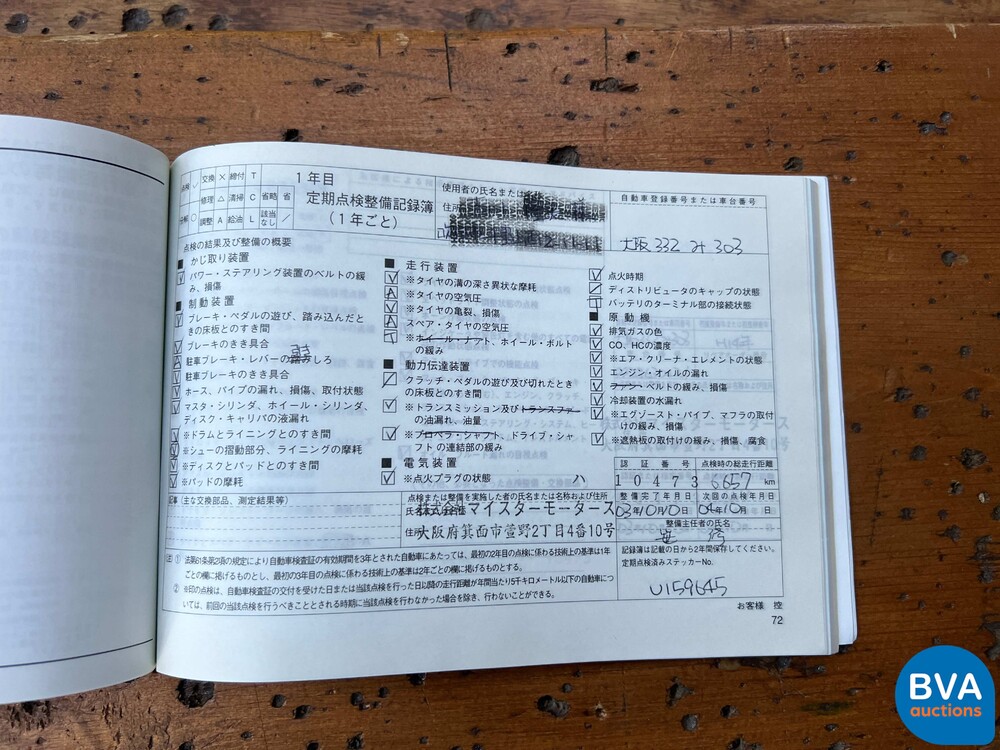 点検 ✓ 交換 × 締付 T
修理 △ 清掃 C 省略 省
分解 ○ 調整 A 給油 L 該当なし ／
1年目
定期点検整備記録簿
(1年ごと)
使用者の氏名または
住所
自動車登録番号または車台番号
大阪 332 み 303
点検の結果及び整備の概要
■ かじ取り装置
パワー・ステアリング装置のベルトの緩
み、損傷
■ 制動装置
ブレーキ・ペダルの遊び、踏み込んだと
きの床板とのすき間
ブレーキのきき具合
駐車ブレーキ・レバーの引きしろ
駐車ブレーキのきき具合
ホース、パイプの漏れ、損傷、取付状態
マスタ・シリンダ、ホイール・シリンダ、
ディスク・キャリパの液漏れ
※ドラムとライニングとのすき間
※シューの摺動部分、ライニングの摩耗
※ディスクとパッドとのすき間
※パッドの摩耗
■ 走行装置
※タイヤの溝の深さ異状な摩耗
※タイヤの空気圧
※タイヤの亀裂、損傷
スペア・タイヤの空気圧
※ホイール・ナット、ホイール・ボルト
の緩み
■ 動力伝達装置
クラッチ・ペダルの遊び及び切れたとき
の床板とのすき間
※トランスミッション及びトランスファ
の油漏れ、油量
※プロペラ・シャフト、ドライブ・シャ
フトの連結部の緩み
■ 電気装置
※点火プラグの状態
点火時期
ディストリビュータのキャップの状態
バッテリのターミナル部の接続状態
■ 原動機
排気ガスの色
CO、HCの濃度
※エア・クリーナ・エレメントの状態
エンジン・オイルの漏れ
ファン・ベルトの緩み、損傷
冷却装置の水漏れ
※エグゾースト・パイプ、マフラの取付
けの緩み、損傷
※遮熱板の取付けの緩み、損傷、腐食
認証番号 点検時の総走行距離
10473 6657 km
整備完了年月日 次回の点検年月日
03年10月10日 04年10月 日
整備主任者の氏名
記事 (主な交換部品、測定結果等)
点検または整備を実施した者の氏名または名称および住所
氏名 株式会社マイスターモータース
住所 大阪府箕面市萱野2丁目4番10号
記録簿は記載の日から2年間保存してください。
定期点検済みステッカーNo.
U159645
(注) ① 法第61条第2項の規定により自動車検査証の有効期間を3年とされた自動車にあたっては、最初の2年目の点検に係わる技術上の基準は1年
ごとの欄に掲げるものとし、最初の3年目の点検に係わる技術上の基準は2年ごとの欄に掲げるものとする。
② ※印の点検は、自動車検査証の交付を受けた日または当該点検を行った日以降の走行距離が年間当り5千キロメートル以下の自動車につ
いては、前回の当該点検を行うべきこととされる時期に当該点検を行わなかった場合を除き、行わないことができる。
お客様 控
72
BVA
auctions